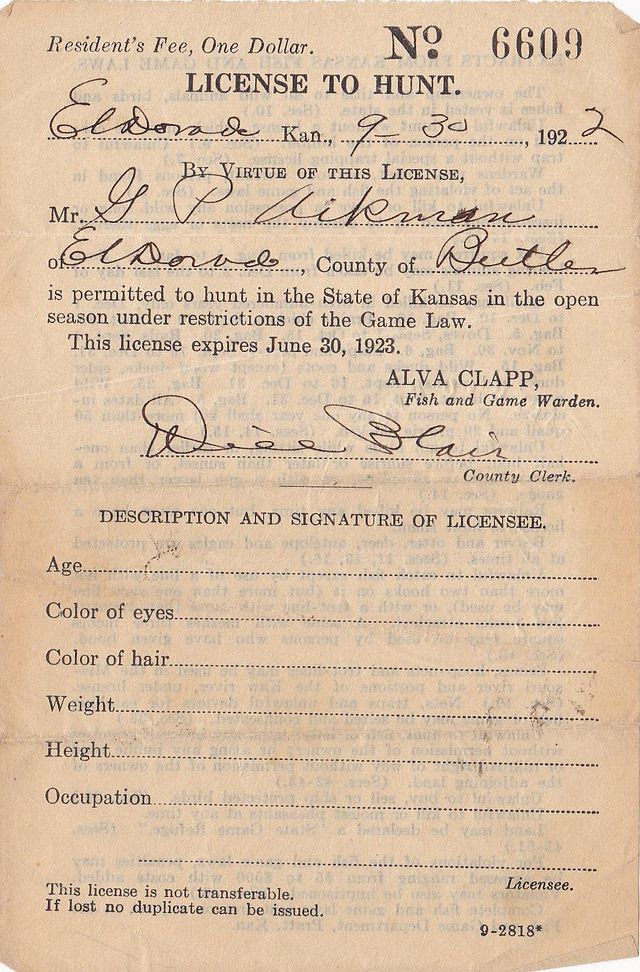 Resident's Fee, One Dollar. No 6609
LICENSE TO HUNT.
ElDorado Kan., 9-30, 1922
BY VIRTUE OF THIS LICENSE,
Mr. G P Aikman
of ElDorado, County of Butler
is permitted to hunt in the State of Kansas in the open
season under restrictions of the Game Law.
This license expires June 30, 1923.
ALVA CLAPP,
Fish and Game Warden.
Blair
County Clerk.
DESCRIPTION AND SIGNATURE OF LICENSEE.
Age
Color of eyes
Color of hair
Weight
Height
Occupation
Licensee.
This license is not transferable.
If lost no duplicate can be issued.
9-2818*